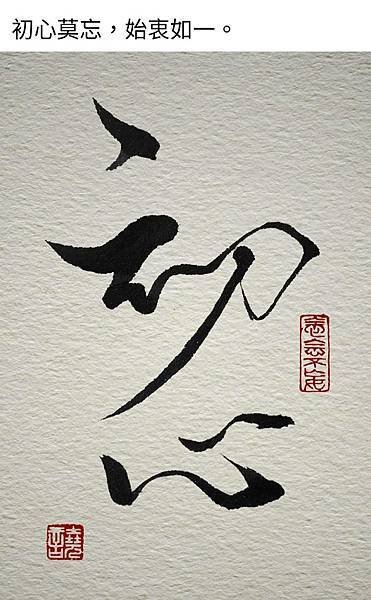 初心莫忘，始衷如一。
初心